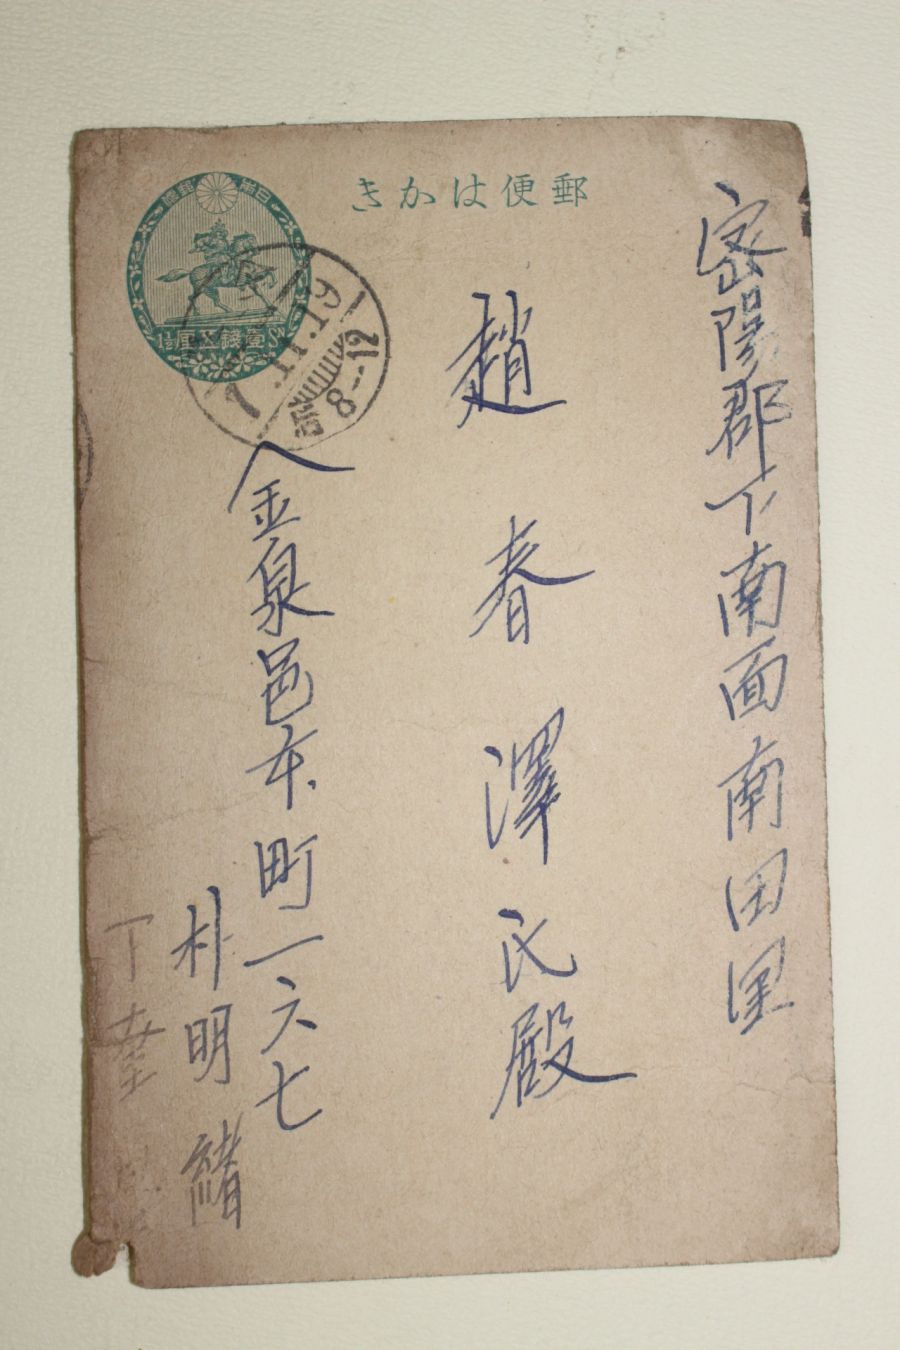 郵便はかき
日本
郵便
1½ 壹錢五厘 Sn
7.11.19
8-12
密陽郡下南面南田里
趙春澤氏殿
金泉邑本町一六七
朴明緖